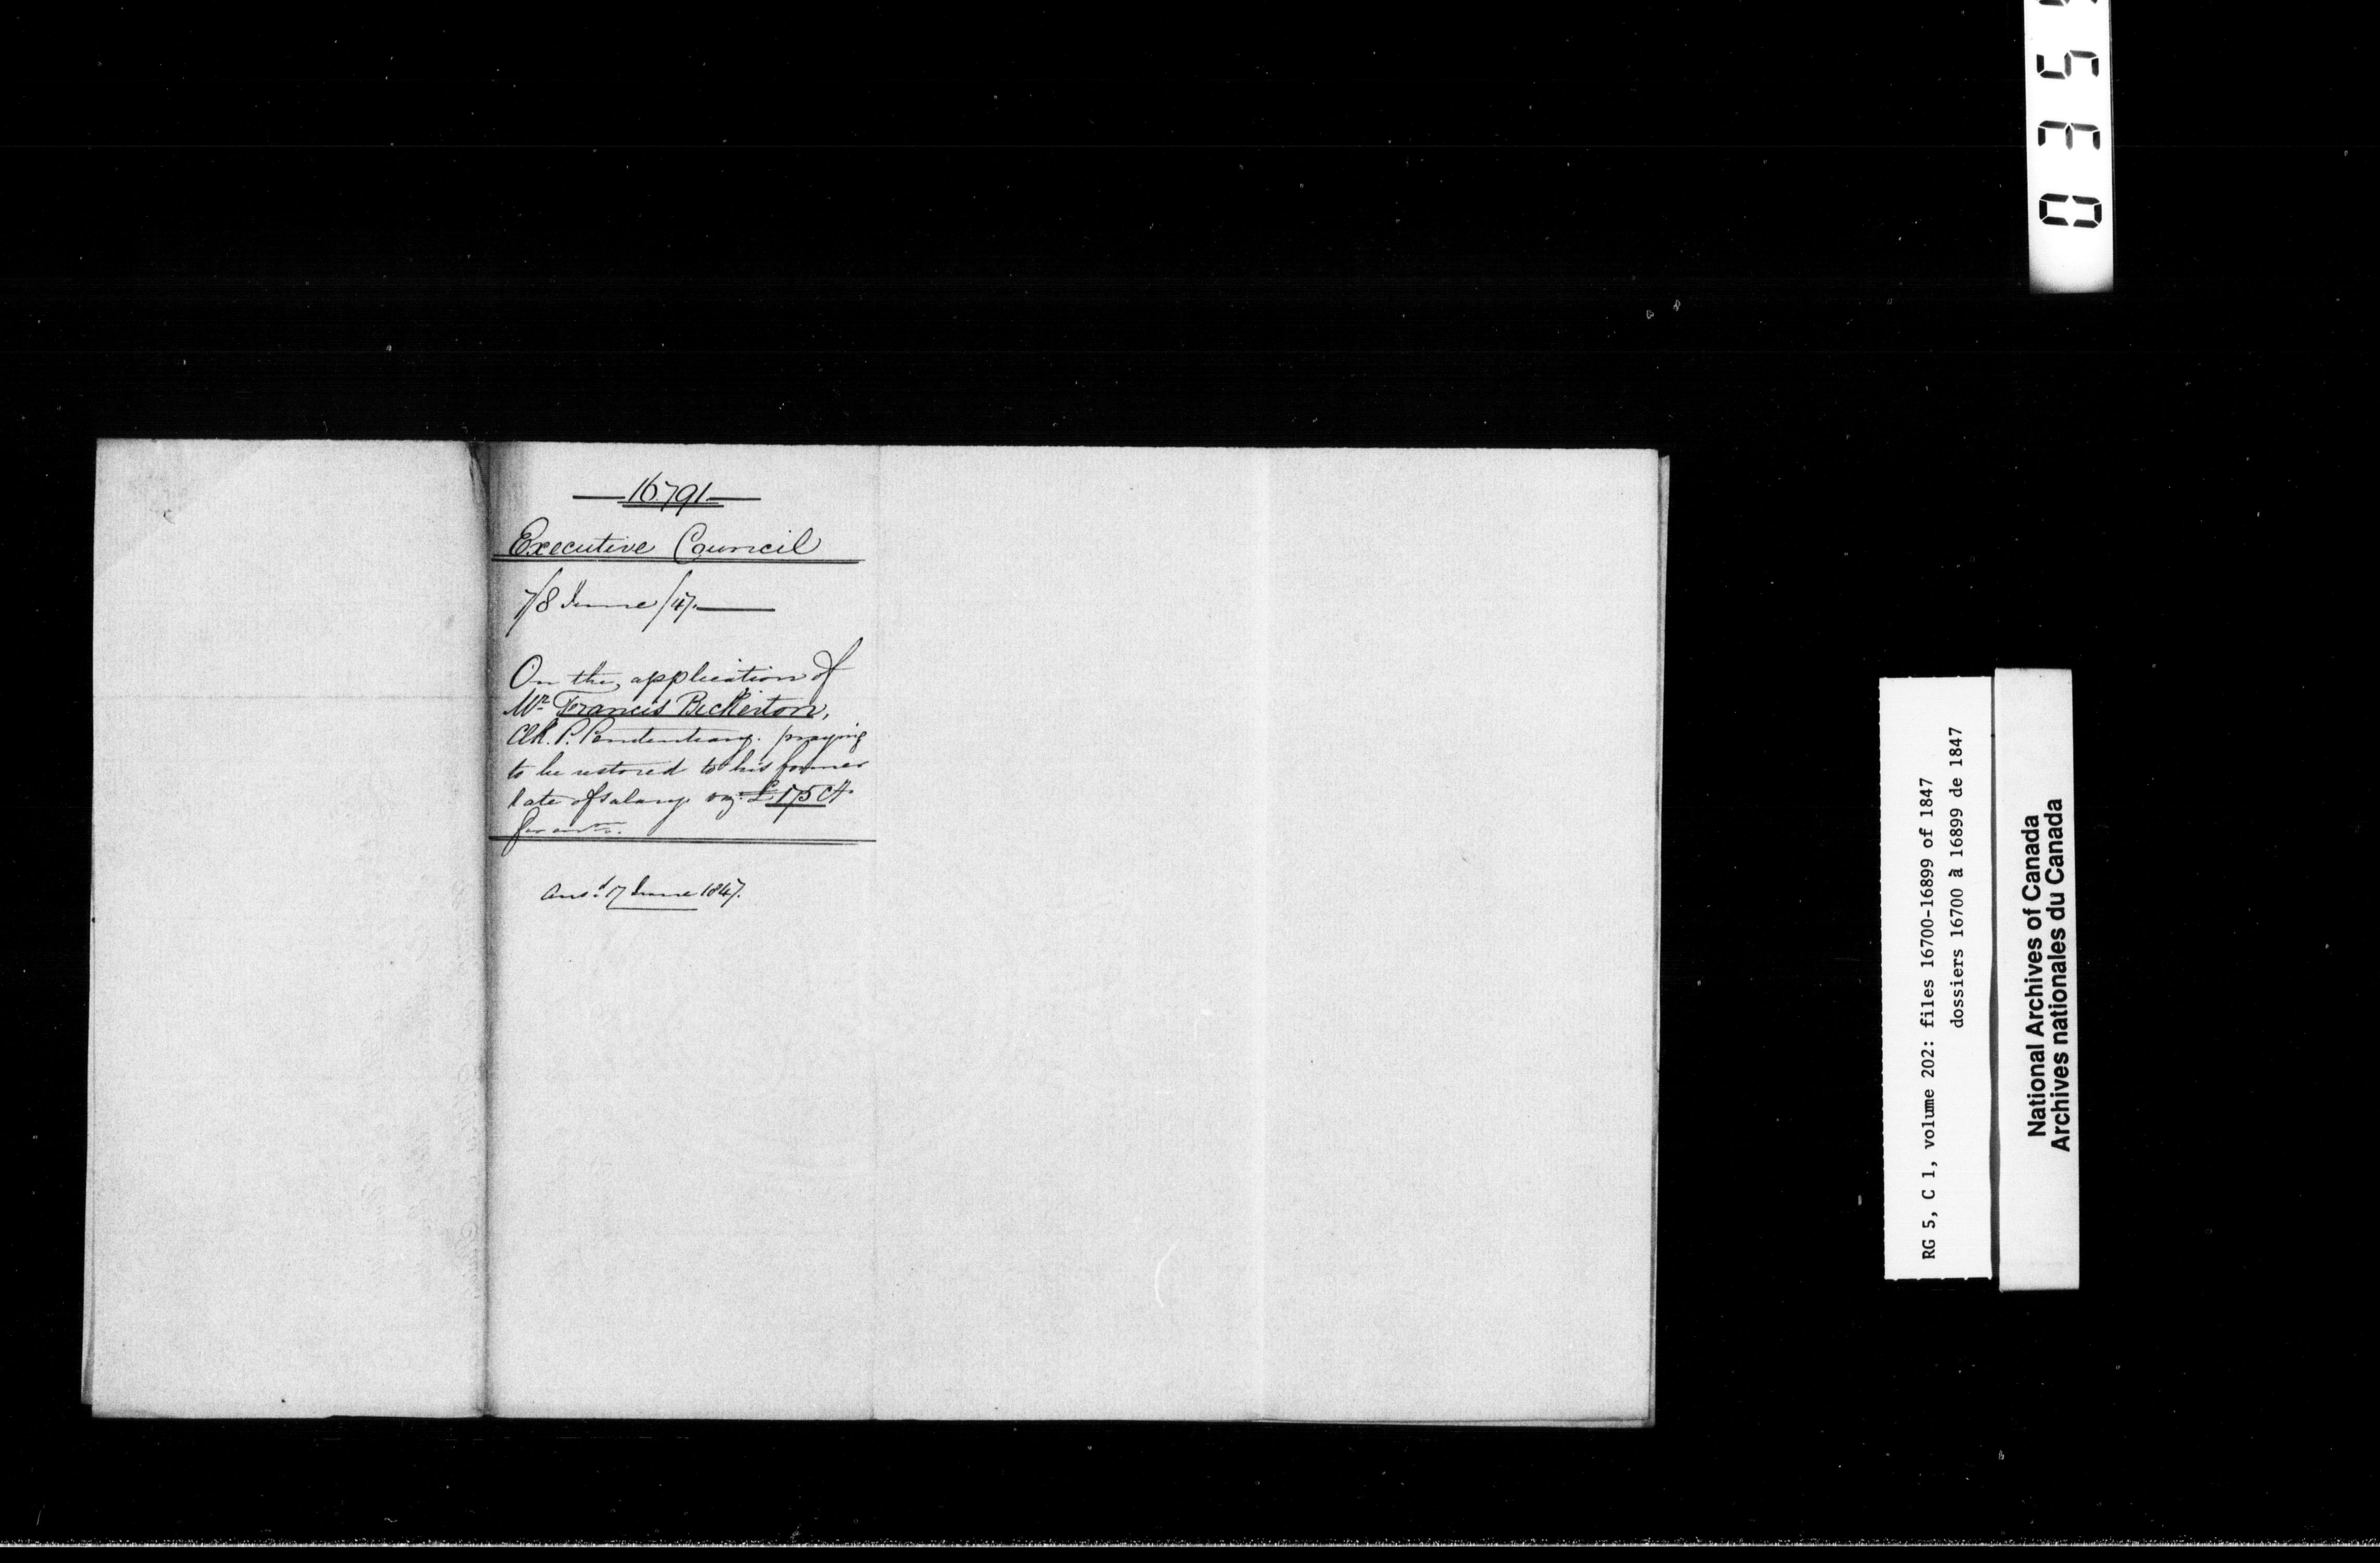 16791
Executive Council
7/8 June /47.
On the application of
Mr. Francis Bickerton,
Clk. P. Penitentiary. praying
to be restored to his former
rate of salary. viz. £175 Cy.
per ann.
Ansd. 17 June 1847.
RG 5, C 1, volume 202: files 16700-16899 of 1847
dossiers 16700 à 16899 de 1847
National Archives of Canada
Archives nationales du Canada